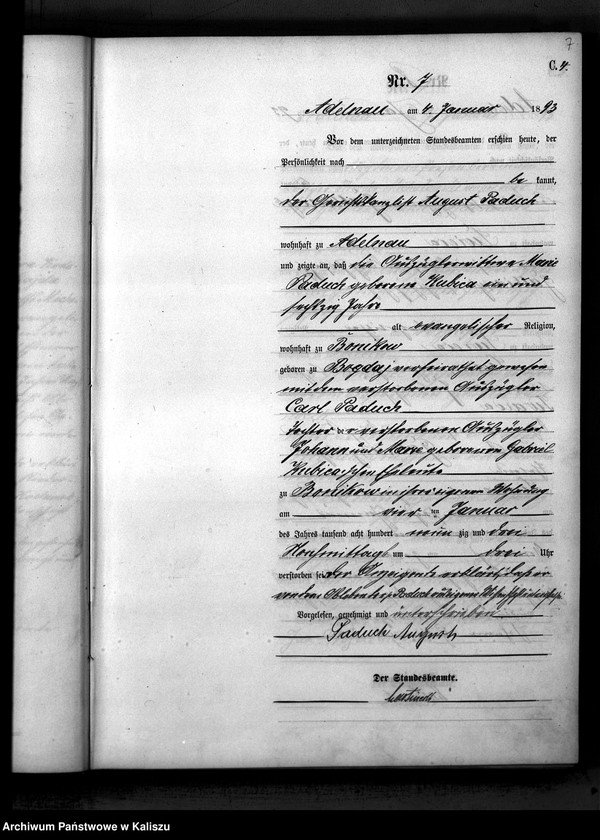 7
C. 4.
Nr. 7
Adelnau am 4. Januar 1893
Vor dem unterzeichneten Standesbeamten erschien heute, der
Persönlichkeit nach
be kannt,
der Gerichtskanzlist August Paduch
wohnhaft zu Adelnau
und zeigte an, daß die Auszüglerwittwe Marie
Paduch geborene Kubica ein und
sechszig Jahre
alt evangelischer Religion,
wohnhaft zu Bonikow
geboren zu Bogdaj verheirathet gewesen
mit dem verstorbenen Auszügler
Carl Paduch
Tochter der verstorbenen Auszügler
Johann und Marie geborenen Gabriel
Kubica'schen Eheleute
zu Bonikow in ihrer eigenen Wohnung
am vier ten Januar
des Jahres tausend acht hundert neun zig und drei
Nachmittags um drei Uhr
verstorben sei. Der Anzeigende erklärt, daß er
von dem Ableben der Paduch aus eigener Wissenschaft
Vorgelesen, genehmigt und unterschrieben
Paduch August
Der Standesbeamte.
Archiwum Państwowe w Kaliszu